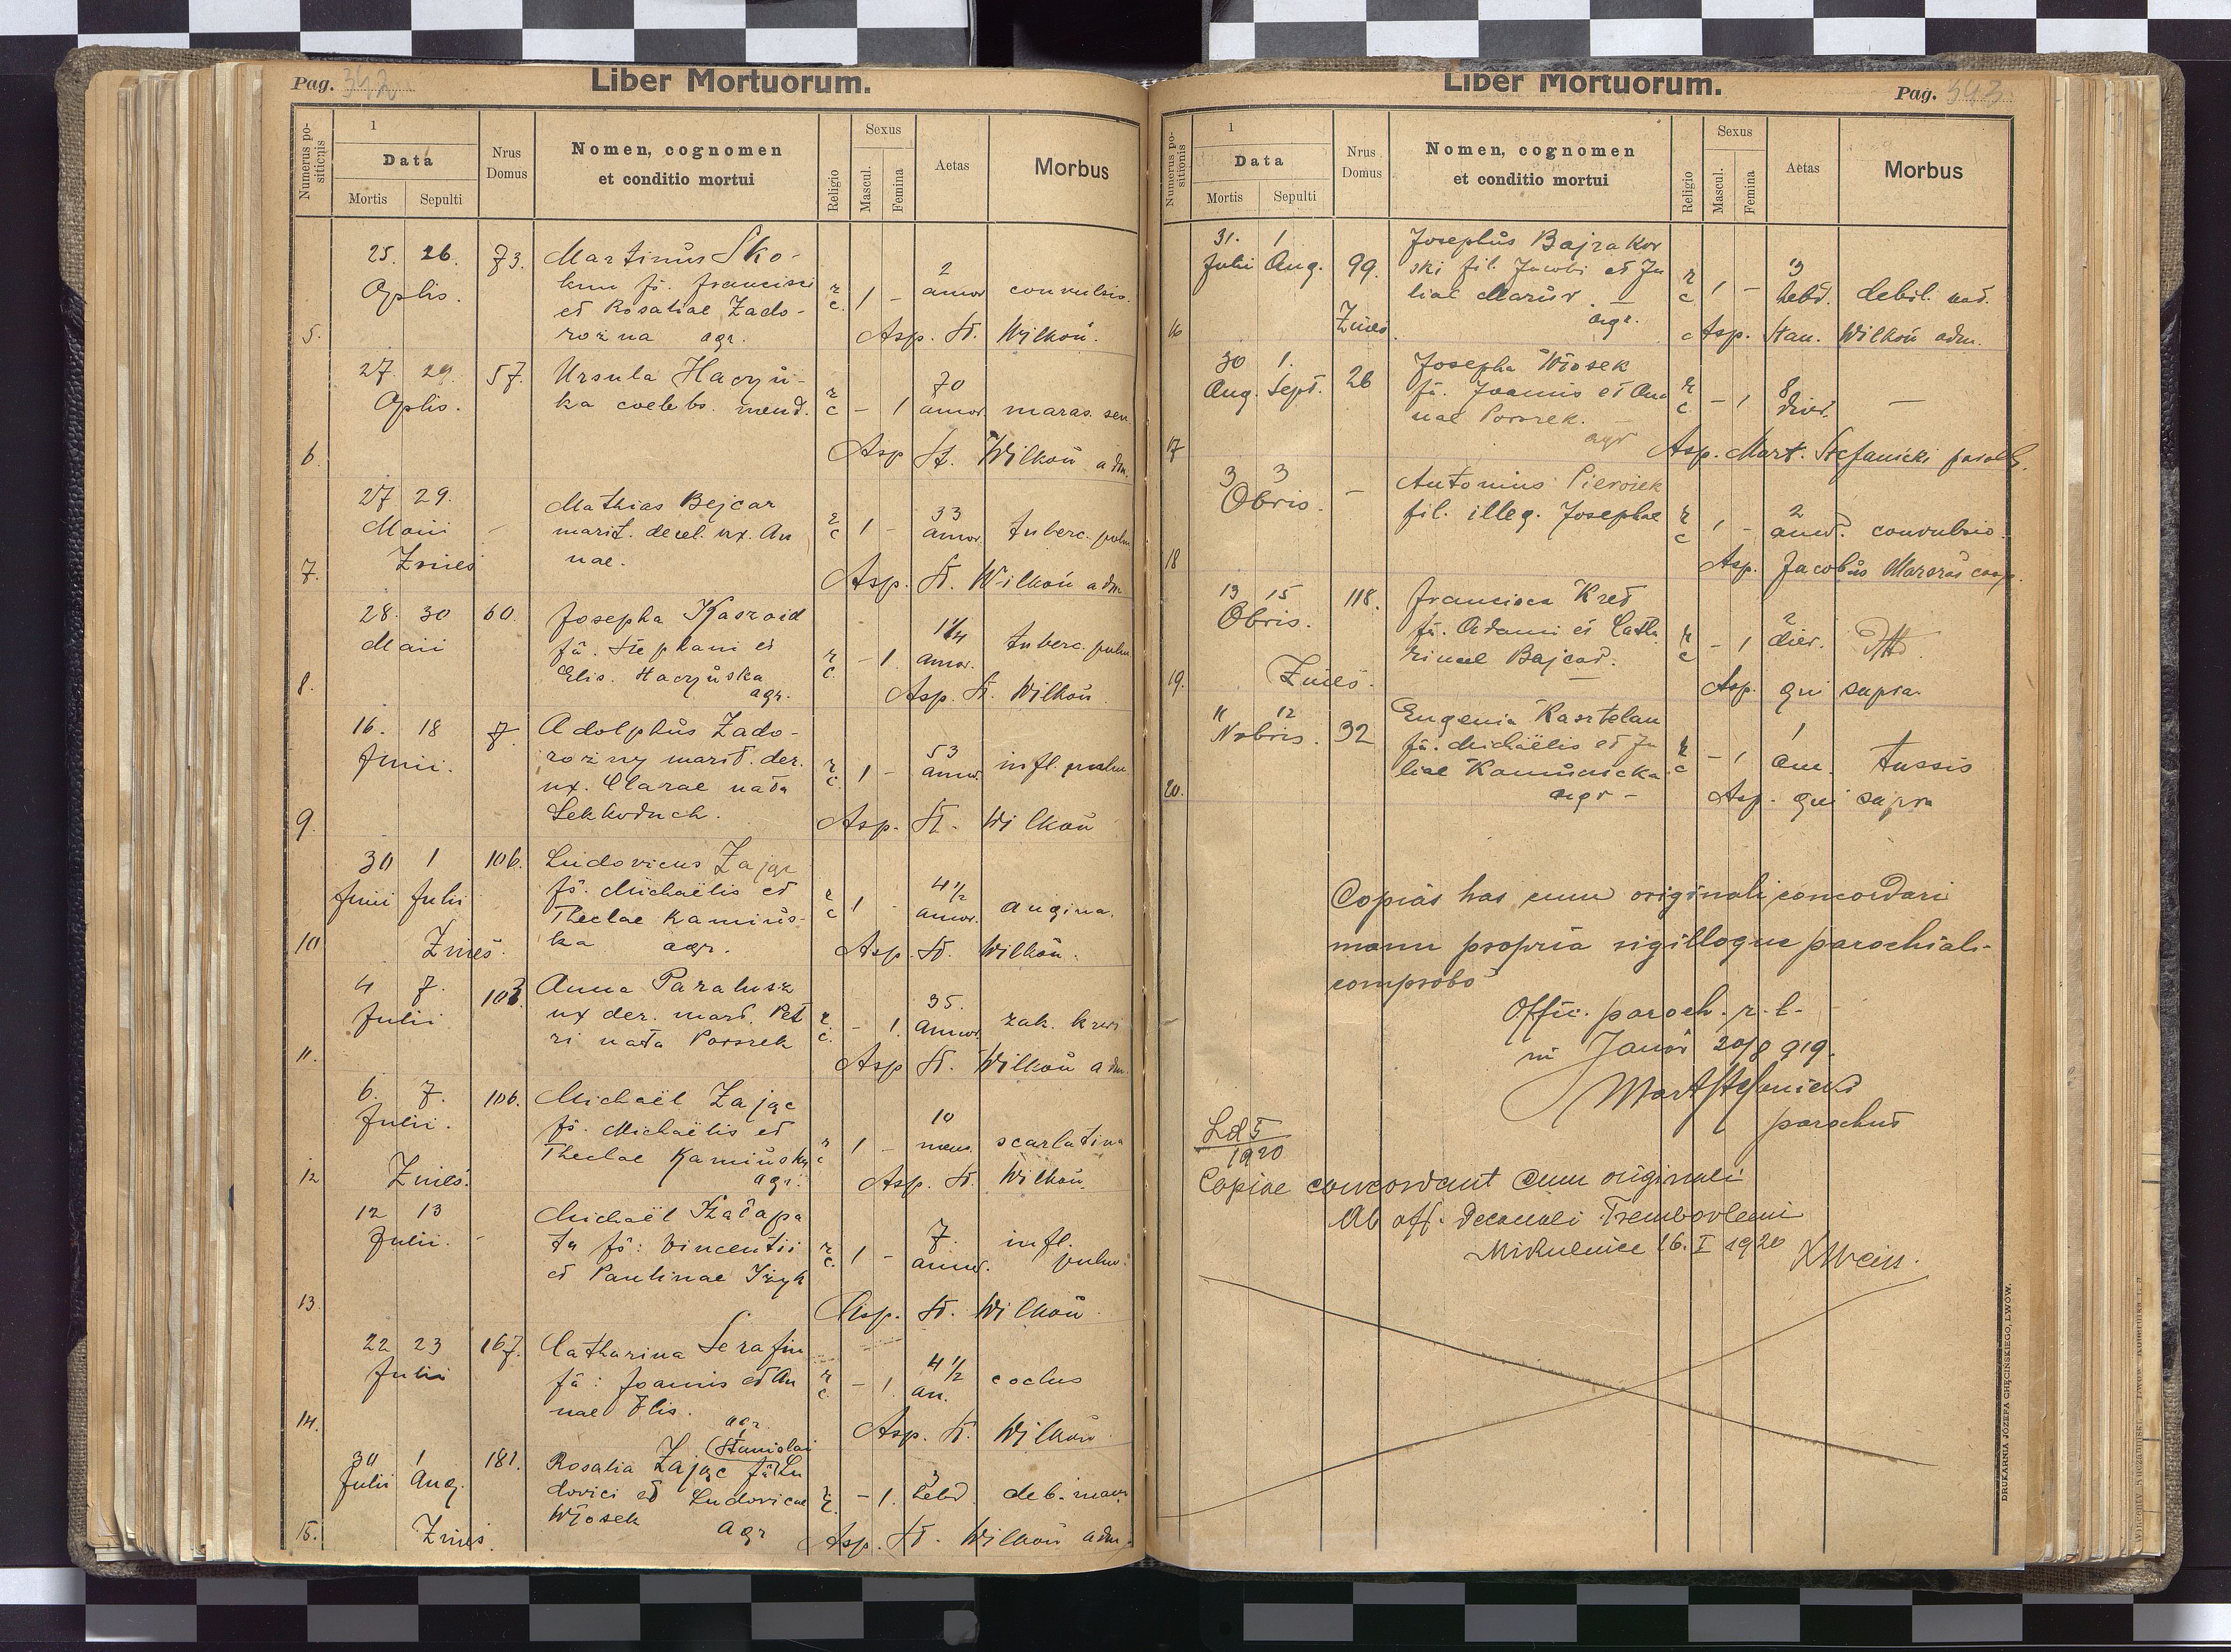 Pag. 342
Liber Mortuorum.
Numerus positionis
1
Data
Mortis Sepulti
Nrus Domus
Nomen, cognomen
et conditio mortui
Religio
Sexus
Mascul. Femina
Aetas
Morbus
25. 26. 73. Martinus Sko-
2
Aplis. fs. Francisci r. c. 1 - annor convulsis.
et Rosaliae Zado-
5. rożna agr. Asp. St. Wilkoń.
27. 29. 57. Ursula Haczyń-
70
Aplis. ka coelebs. mend. r. c - 1 annor. maras. sen
6. Asp St. Wilkoń adm.
27 29. Mathias Bejcar
33
Maii - marit. derel. ux. An r c 1 - annor. tuberc. pulm
7. Znies nae. Asp. St. Wilkoń adm
28. 30 60. Josepha
1 1/4
Maii fa. Stephani et r c. - 1. annor. tuberc. pulm
Elis. Haczyńska
8. agr. Asp. St. Wilkoń
16. 18 7. Adolphus Zado-
53
Junii. rożny marit. der. r. c. 1 - annor. infl. pulm
ux. Clarae nata
9. Asp. St. Wilkoń
30 1 106. Ludovicus Zając
4 1/2
Junii Julii fs. Michaëlis et r c 1 - annor. angina.
Theclae Kamińs-
10 Znieś. ka agr. Asp. St. Wilkoń.
4 7. 103. Anna Paralusz
35.
Julii ux der. marit. Pet r. c. - 1. annor. zak. krwi
ri nata Porszek
11. Asp St. Wilkoń adm.
6. 7. 106. Michaël Zając
10
Julii. fs. Michaëlis et r c 1 - mens. scarlatina
Theclae Kamińska
12 Znieś. agr. Asp. St. Wilkoń.
12 13 Michaël Kaćapa
7.
Julii. - ta fs: Vincentii r. c. 1 - annor. infl. pulm.
et Paulinae
13. Asp. St. Wilkoń
22 23 167. Catharina Serafin
4 1/2
Julii fa: Joannis et An r c. - 1. an. coclus
nae Flis.
14. agr Asp. St. Wilkoń
(Stanislai
30 1 181. Rosalia Zając fa Lu
3
Julii Aug. dovici et Ludovicae r. c. - 1. hebd. deb.
Włosek
15. Znieś. agr Asp. St. Wilkoń adm.
Liber Mortuorum.
Pag. 343
Numerus positionis
1
Data
Mortis Sepulti
Nrus Domus
Nomen, cognomen
et conditio mortui
Religio
Sexus
Mascul. Femina
Aetas
Morbus
31. 1 Josephus Bajrakow
Julii Aug. 99. ski fil. Jacobi et Ju r c 1 - 3 hebd. debil. nat.
liae Mazur. - agr.
16 Znieś. Asp. Stan. Wilkoń adm.
30 1. Josepha Włosek
Aug. Sept. 26 fa. Joannis et An r c. - 1 8 dier. -
nae Porszek. agr
17 Asp. Mart. Stefanicki paroch.
3 3 Antonius
Obris. - fil. illeg. Josephae r c 1 - 2 annor. convulsio.
18 Asp. Jacobus coop.
13 15 118. Francisca Kret
Obris. fa. Adami et Catha r c - 1 2 dier.
rinae Bajcar.
19. Znieś. Asp. qui supra.
11 12 Eugenia Kasztelan
Nvbris. 32 fa. Michaëlis et Ju r c - 1 1 an. tussis
liae Kamińska
20. agr - Asp. qui supra
Copias has cum originali concordari
manu propria sigilloque parochiali-
comprobo
Offic. paroch. r. l.
in Janów 20/8 919.
Mart Stefanicki
parochus
Ld 5/1920
Copiae concordant cum originali
Ab off. Decanali Trembovlensi
Mikulińce 16. I 1920 X Weiss.
DRUKARNIA JÓZEFA CHĘCIŃSKIEGO, LWÓW.